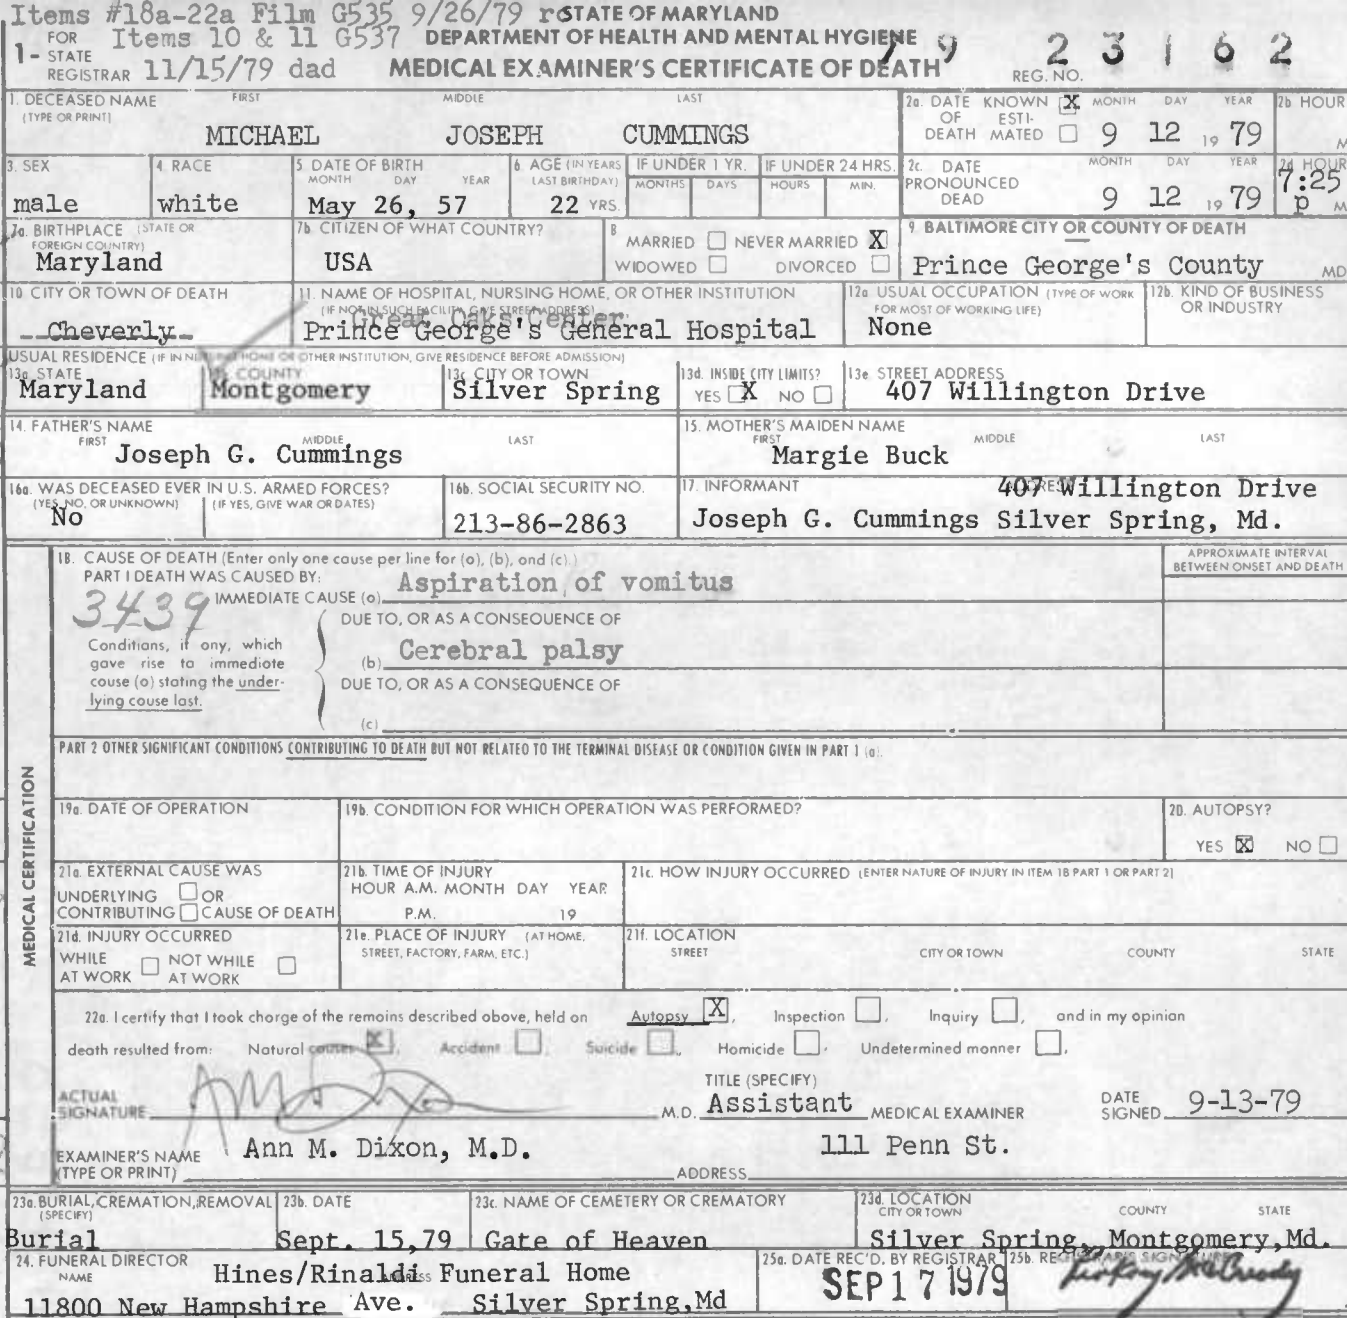 Items #18a-22a Film G535 9/26/79 STATE OF MARYLAND
FOR Items 10 & 11 G537 DEPARTMENT OF HEALTH AND MENTAL HYGIENE
1- STATE
REGISTRAR 11/15/79 dad MEDICAL EXAMINER'S CERTIFICATE OF DEATH
79 23162
REG. NO.
1. DECEASED NAME FIRST MIDDLE LAST
(TYPE OR PRINT)
MICHAEL JOSEPH CUMMINGS
2a. DATE KNOWN X MONTH DAY YEAR
OF ESTI-
DEATH MATED 9 12 19 79
2b HOUR
M
3. SEX
male
4. RACE
white
5 DATE OF BIRTH
MONTH DAY YEAR
May 26, 57
6. AGE (IN YEARS
LAST BIRTHDAY)
22 YRS.
IF UNDER 1 YR.
MONTHS DAYS
IF UNDER 24 HRS.
HOURS MIN.
2c. DATE MONTH DAY YEAR
PRONOUNCED
DEAD 9 12 19 79
2d HOUR
7:25
p M
7a. BIRTHPLACE (STATE OR
FOREIGN COUNTRY)
Maryland
7b. CITIZEN OF WHAT COUNTRY?
USA
8
MARRIED NEVER MARRIED X
WIDOWED DIVORCED
9. BALTIMORE CITY OR COUNTY OF DEATH
Prince George's County MD
10 CITY OR TOWN OF DEATH
Cheverly
11. NAME OF HOSPITAL, NURSING HOME, OR OTHER INSTITUTION
(IF NOT IN SUCH FACILITY, GIVE STREET ADDRESS)
Great Oaks Center
Prince George's General Hospital
12a USUAL OCCUPATION (TYPE OF WORK
FOR MOST OF WORKING LIFE)
None
12b. KIND OF BUSINESS
OR INDUSTRY
USUAL RESIDENCE (IF IN NURSING HOME OR OTHER INSTITUTION, GIVE RESIDENCE BEFORE ADMISSION)
13a STATE
Maryland
COUNTY
Montgomery
13c CITY OR TOWN
Silver Spring
13d. INSIDE CITY LIMITS?
YES X NO
13e STREET ADDRESS
407 Willington Drive
14. FATHER'S NAME
FIRST MIDDLE LAST
Joseph G. Cummings
15. MOTHER'S MAIDEN NAME
FIRST MIDDLE LAST
Margie Buck
16a. WAS DECEASED EVER IN U.S. ARMED FORCES?
(YES, NO, OR UNKNOWN) (IF YES, GIVE WAR OR DATES)
No
16b. SOCIAL SECURITY NO.
213-86-2863
17. INFORMANT ADDRESS
407 Willington Drive
Joseph G. Cummings Silver Spring, Md.
18. CAUSE OF DEATH (Enter only one cause per line for (a), (b), and (c).)
PART I DEATH WAS CAUSED BY:
Aspiration of vomitus
3439 IMMEDIATE CAUSE (a)
APPROXIMATE INTERVAL
BETWEEN ONSET AND DEATH
DUE TO, OR AS A CONSEQUENCE OF
Conditions, if any, which
gave rise to immediate
cause (a) stating the under-
lying cause last.
(b) Cerebral palsy
DUE TO, OR AS A CONSEQUENCE OF
(c)
PART 2 OTHER SIGNIFICANT CONDITIONS CONTRIBUTING TO DEATH BUT NOT RELATED TO THE TERMINAL DISEASE OR CONDITION GIVEN IN PART 1 (a).
MEDICAL CERTIFICATION
19a. DATE OF OPERATION
19b. CONDITION FOR WHICH OPERATION WAS PERFORMED?
20. AUTOPSY?
YES X NO
21a. EXTERNAL CAUSE WAS
UNDERLYING OR
CONTRIBUTING CAUSE OF DEATH
21b. TIME OF INJURY
HOUR A.M. MONTH DAY YEAR
P.M. 19
21c. HOW INJURY OCCURRED (ENTER NATURE OF INJURY IN ITEM 18 PART 1 OR PART 2)
21d. INJURY OCCURRED
WHILE NOT WHILE
AT WORK AT WORK
21e. PLACE OF INJURY (AT HOME,
STREET, FACTORY, FARM, ETC.)
21f. LOCATION
STREET CITY OR TOWN COUNTY STATE
22a. I certify that I took charge of the remains described above, held on Autopsy X, Inspection , Inquiry , and in my opinion
death resulted from: Natural causes X, Accident , Suicide , Homicide , Undetermined manner ,
ACTUAL
SIGNATURE M.D.
TITLE (SPECIFY)
Assistant MEDICAL EXAMINER
DATE
SIGNED 9-13-79
EXAMINER'S NAME
(TYPE OR PRINT) Ann M. Dixon, M.D.
ADDRESS 111 Penn St.
23a. BURIAL, CREMATION, REMOVAL
(SPECIFY)
Burial
23b. DATE
Sept. 15,79
23c. NAME OF CEMETERY OR CREMATORY
Gate of Heaven
23d. LOCATION
CITY OR TOWN COUNTY STATE
Silver Spring, Montgomery, Md.
24. FUNERAL DIRECTOR
NAME ADDRESS
Hines/Rinaldi Funeral Home
11800 New Hampshire Ave. Silver Spring, Md
25a. DATE REC'D. BY REGISTRAR
SEP 17 1979
25b. REGISTRAR'S SIGNATURE